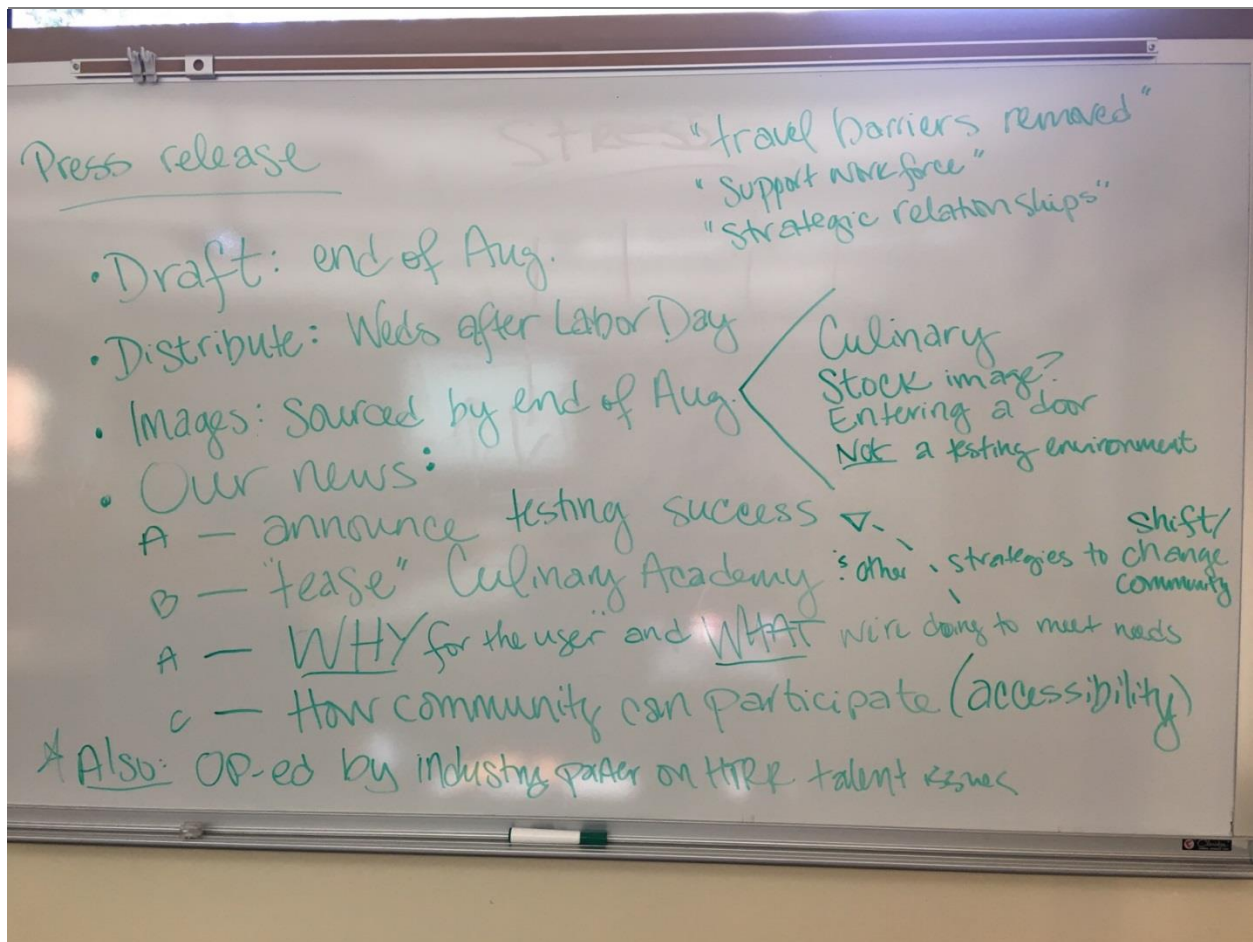 Press release
"travel barriers removed"
"Support workforce"
"Strategic relationships"
• Draft: end of Aug.
• Distribute: Weds after Labor Day
• Images: Sourced by end of Aug.
Culinary
Stock image?
Entering a door
Not a testing environment
• Our news:
A — announce testing success
B — "tease" Culinary Academy
: other strategies to shift/
change
community
A — WHY for the "user" and WHAT we're doing to meet needs
C — How community can participate (accessibility)
* Also: OP-ed by industry on talent issues
STRESS